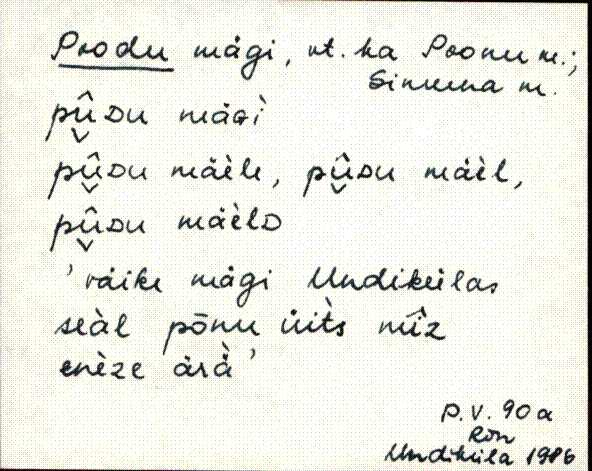 Poodu mägi, vt. ka Poonu m.;
Sinema m.
pû̬ᴅu mäɢì
pû̬ᴅu mäèle, pû̬ᴅu mäèl,
pû̬ᴅu mäèlᴅ
'väike mägi Undikülas
seàl pōnu üìts mîz
enèze ärä̀'
P.V. 90 a
Rõn
Undiküla 1986